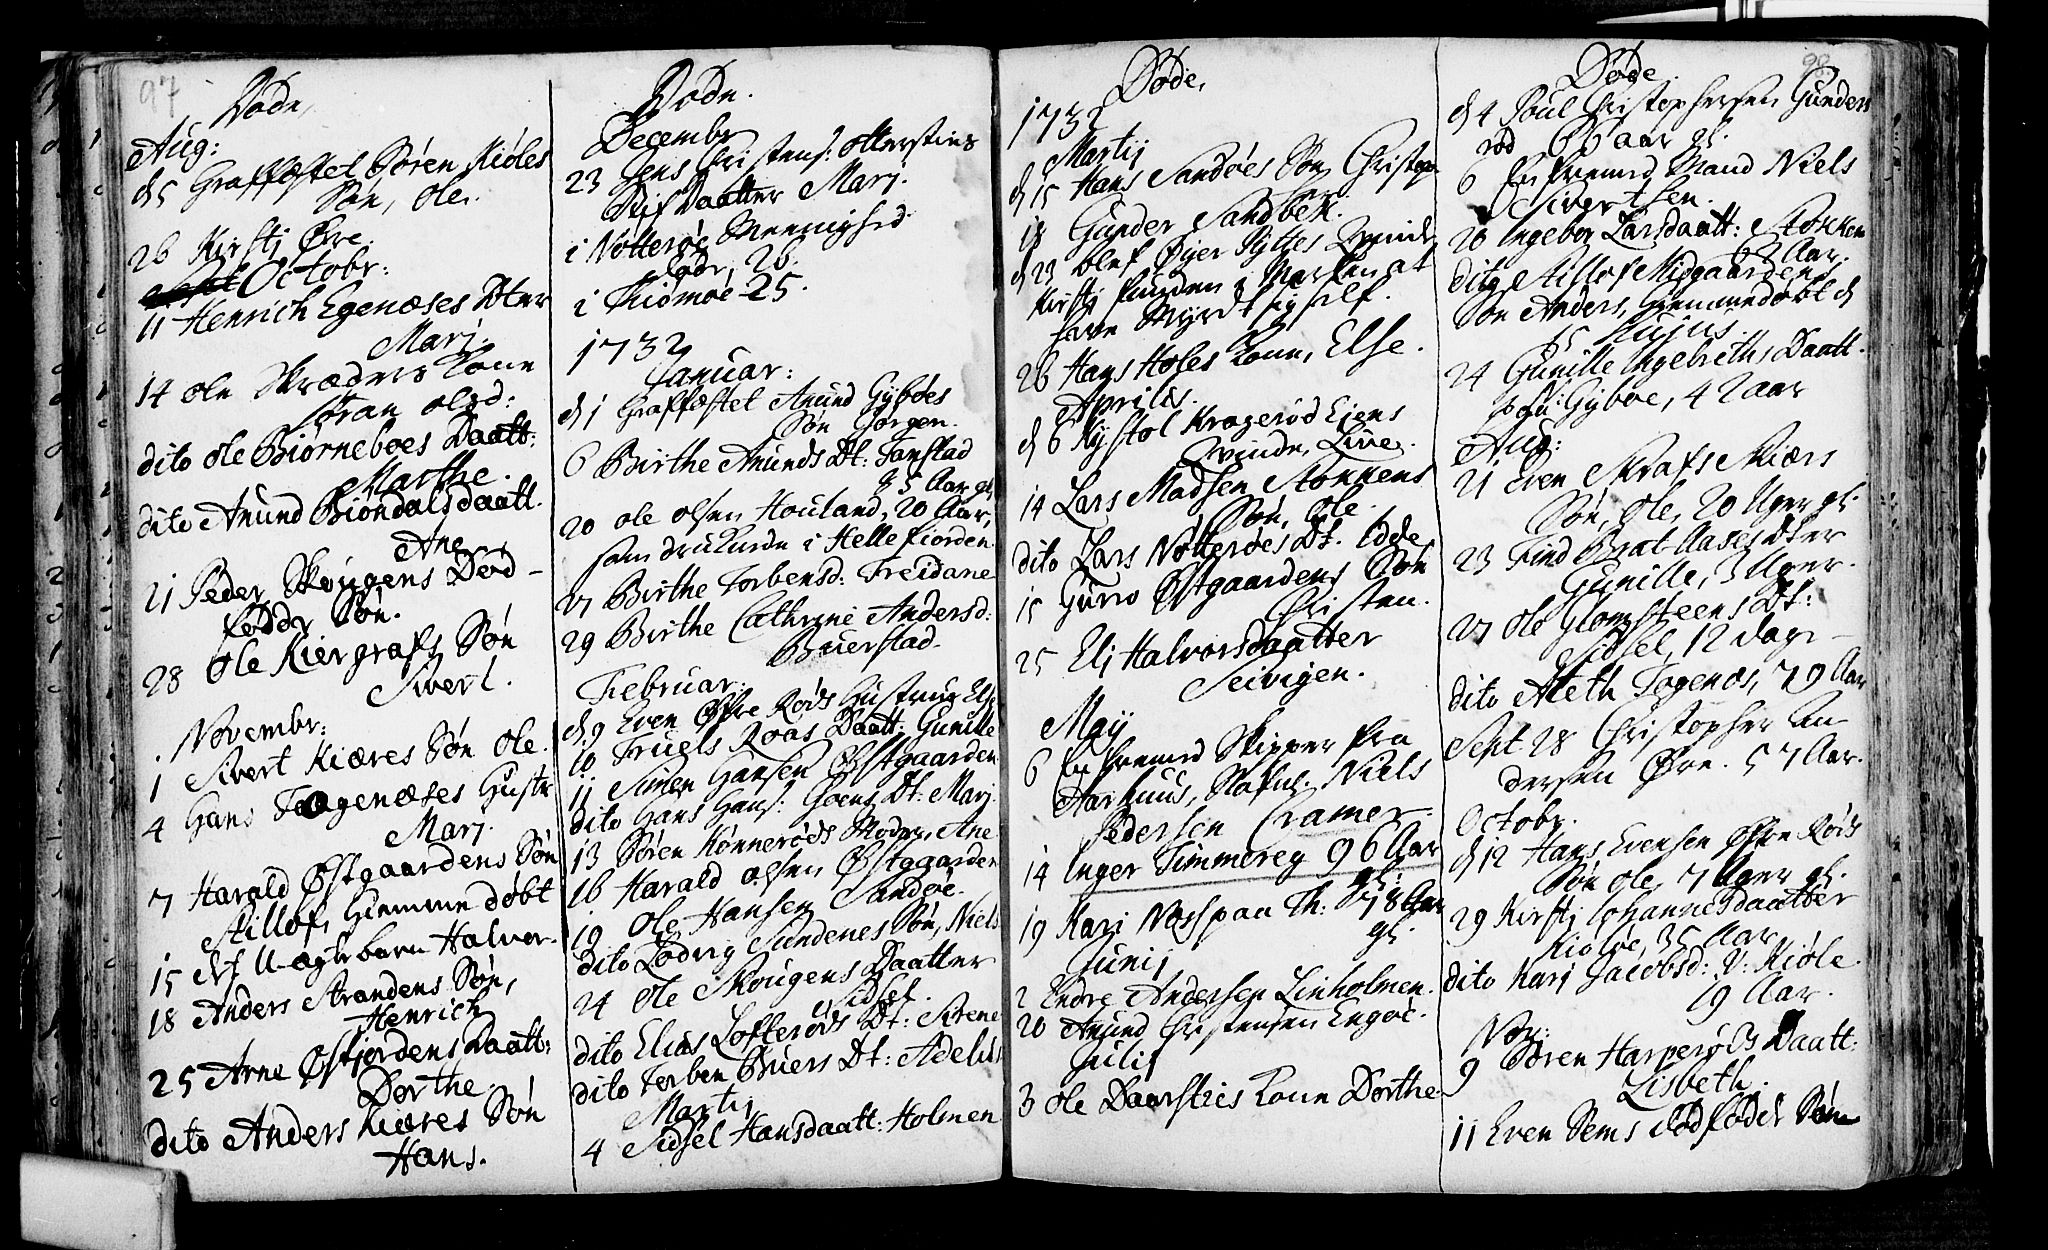 97
Døde,
Aug:
d 5 Graffæstet Søren Kiøles
Søn, Ole.
26 Kirstj Øre
Octobr:
11 Henrich Egenæses Dter
Marj.
14 Ole Skræders Kone
Søran Olsd:
dito Ole Biørneboes Daatt:
Marthe.
dito Anund Biøndals daatt.
Ane
21 Peder Skougens Død-
fødde Søn.
28 Ole Kiergrafs Søn
Sivert.
Novembr:
1 Sivert Kiæres Søn Ole.
4 Hans Fogenæses Hustr
Marj.
7 Harald Østgaardens Søn
Stillof, Hiemme døbt
15 Et U-ægte barn Halvor.
18 Anders Strandens Søn,
Henrich
25 Arne Østjordens Daatt:
Dorthe
dito Anders Kiæres Søn
Hans.
Døde.
Decembr
23 Jens Christens: Ottersties
Datter Marj.
i Nøtterøe Meenighed
døde, 26.
i Tiømøe 25.
1732
Januar:
d 1 Graffæstet Anund Gyboes
Søn Jørgen.
6 Birthe Anunds Dt: Fonstad
85 Aar gl.
20 Ole Olsen Houland, 20 Aar,
som druknede i Hellefiorden.
27 Birthe Torbensd: Treidane
29 Birthe Cathrine Andersd:
Buerstad.
Februar:
d 9 Even Øfre Røds Hustrue Else
10 Truels Roas Daatt: Gunille
11 Simen Hansen Østgaarden
dito Hans Hans: Goens Dt: Marj.
13 Søren Kønnerøds Moder, Ane
16 Harald Olsen Østgaarden
19 Ole Hansen Sandøe.
dito Lodvig Sundenes Søn, Niels
24 Ole Skougens Daatter
Sidsel.
dito Elias Lofterøds Dt: Sirene
dito Torben Buers Dt: Adelus
Martij
4 Sidsel Hansdaatt: Holmen
Døde,
1732
Martij
d 15 Hans Sandøes Søn Christop
her.
18 Gunder Sandbek.
d 23 Oluf Øyer Hyttes Qvinde
Kirstj funden i Marken at
have Myrdt sig self.
26 Hans Holes Kone, Else.
Aprilis.
d 6 Kystol Kragerød Eiens
Qvinde, Live.
14 Lars Madsen Stokkens
Søn, Ole.
dito Lars Nøtterøes Dt. Edde
15 Guro Østgaardens Søn
Christen.
25 Elj Halvorsdaatter
Seivigen.
Maij
6 En fremd Skipper fra
Aarhuus, Nafnl: Niels
Pedersen Cramer.
14 Inger Timmereg 96 Aar
gl.
19 Kari Næss paa Th: 78 Aar
gl.
Junij
2 Endre Andersen Linholmen.
20 Anund Christensen Engøe.
Julij
3 Ole Daarsties Kone Dorthe.
98
Døde.
d 4 Poul Christophersen Gunders
rød 66 aar gl.
6 En fremd Mand Niels
Sivertsen.
20 Ingebor Larsdaatt: Stokken
62 Aar.
dito Stillof Midgaardens
Søn Anders, Hiemmedøbt d
15 Hujus.
24 Gunille Ingebreths Daatt.
Gyboe, 42 aar
Aug:
21 Even Skrafs Kiærs
Søn, Ole, 20 Uger gl.
23 Find Brat Aases Dter
Gunille, 3 Uger.
27 Ole Glomsteens Dt:
Sidsel, 12 dage
dito Aleth Fogenæs, 79 Aar
Sept 28 Christopher An
dersen Øre. 57 Aar.
Octobr.
d 12 Hans Evensen Øfre Røds
Søn Ole, 7 Uger gl.
29 Kirstj Johannesdaatter
Kiøløe, 35 Aar
dito Karj Jacobsd: V: Kiøle
19 Aar.
Nov:
9 Søren Harperøds Daatt:
Lisbeth.
11 Even Sems dødfødde Søn